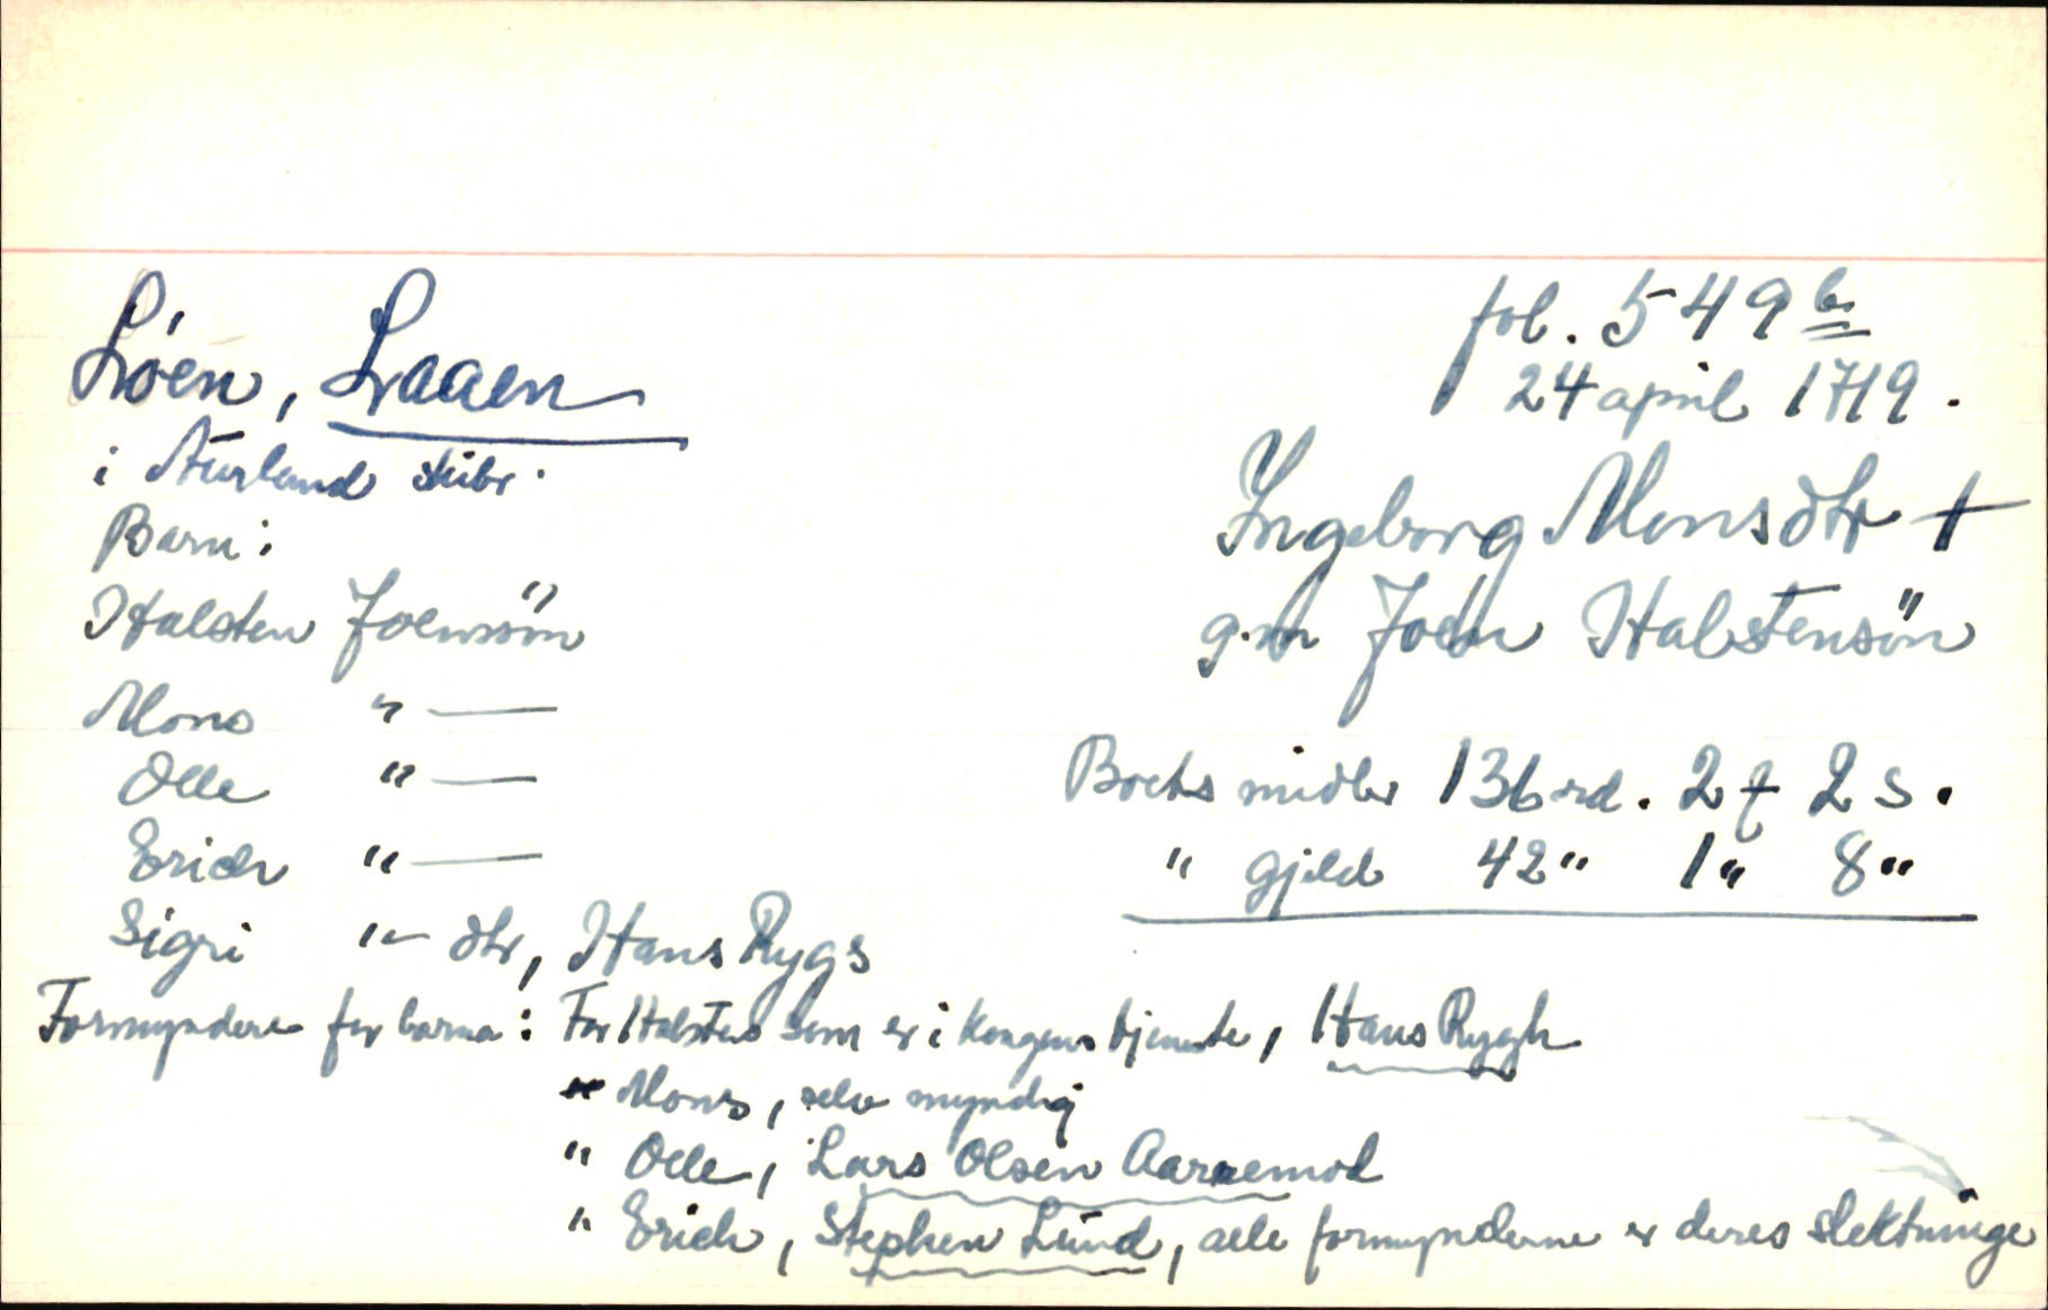 Lóen, Laaen
i Aurland skibr.
Barn:
Halsten Joensön
Mons " —
Olle " —
Erich " —
Sigri " — dtr, Hans Rygs
fol. 549 b
24 april 1719.
Ingeborg Monsdtr +
g.m Joen Halstensön
Boets midler 136 rd. 2 f 2 s.
" gjeld 42 " 1 " 8 "
Formyndere for barna: For Halsten som er i Kongens tjeneste, Hans Rygh
" Mons, selv myndig
" Olle, Lars Olsen Aaremod
" Erich, Stephen Lund, alle formynderne er deres slektninge